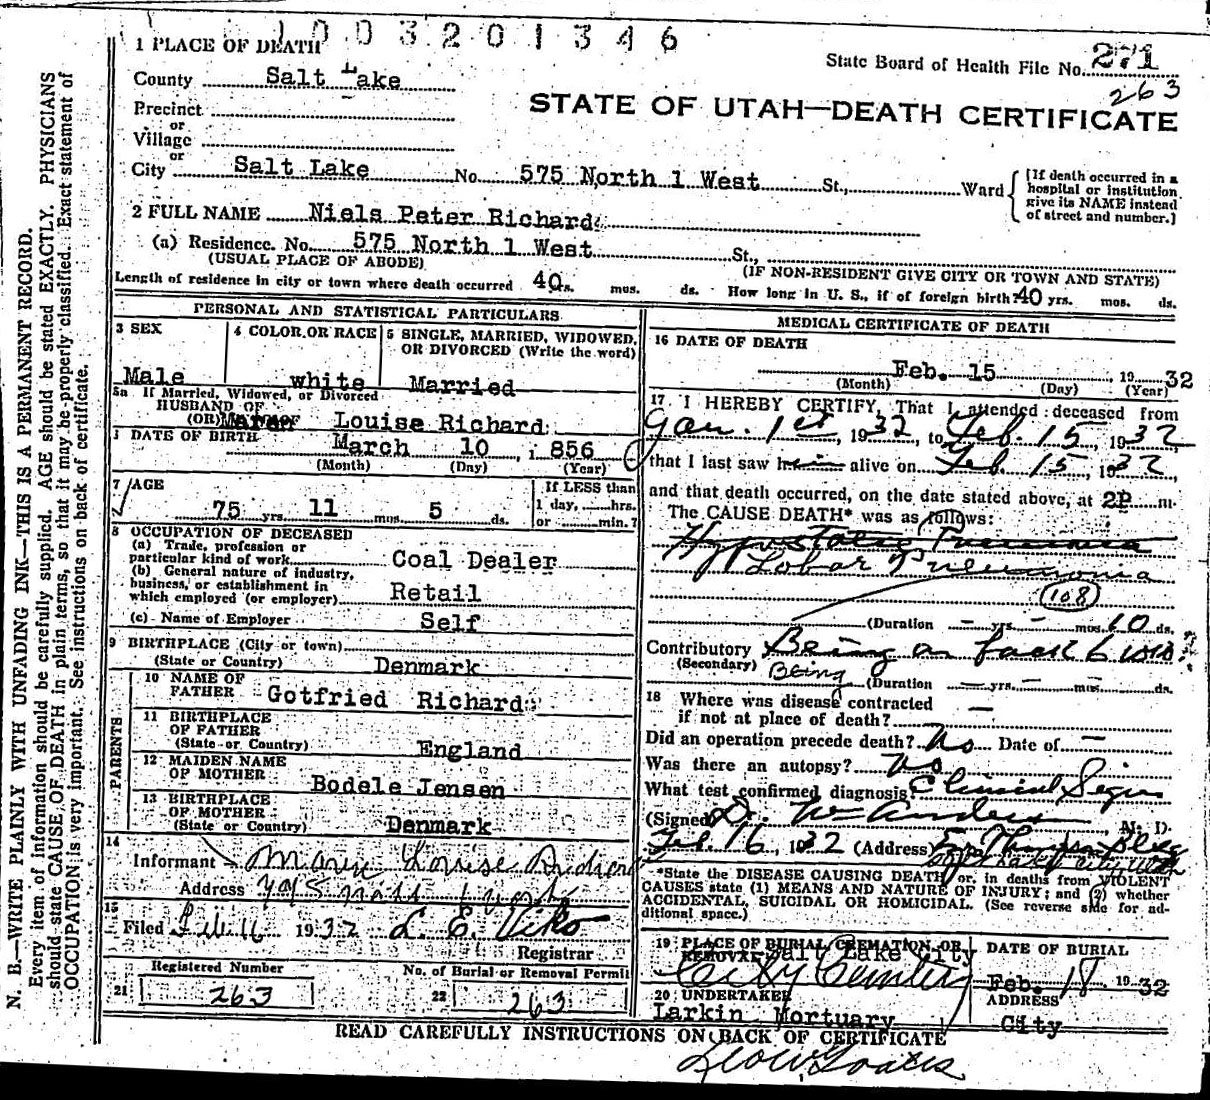 1003201346
1 PLACE OF DEATH
State Board of Health File No. 271
County Salt Lake
263
Precinct
STATE OF UTAH—DEATH CERTIFICATE
or
Village
or
City Salt Lake No. 575 North 1 West St., Ward
[If death occurred in a
hospital or institution
give its NAME instead
of street and number.]
2 FULL NAME Niels Peter Richard
(a) Residence. No. 575 North 1 West St.,
(USUAL PLACE OF ABODE) (IF NON-RESIDENT GIVE CITY OR TOWN AND STATE)
Length of residence in city or town where death occurred 40 yrs. mos. ds. How long in U. S., if of foreign birth? 40 yrs. mos. ds.
PERSONAL AND STATISTICAL PARTICULARS
3 SEX 4 COLOR OR RACE 5 SINGLE, MARRIED, WIDOWED,
OR DIVORCED (Write the word)
Male white Married
5a If Married, Widowed, or Divorced
HUSBAND OF
(OR) Louise Richard
DATE OF BIRTH March 10, 1856
(Month) (Day) (Year)
7 AGE If LESS than
1 day, hrs.
75 yrs. 11 mos. 5 ds. or min.?
8 OCCUPATION OF DECEASED
(a) Trade, profession or
particular kind of work Coal Dealer
(b) General nature of industry,
business, or establishment in
which employed (or employer) Retail
(c) Name of Employer Self
9 BIRTHPLACE (City or town)
(State or Country) Denmark
PARENTS
10 NAME OF
FATHER Gotfried Richard
11 BIRTHPLACE
OF FATHER
(State or Country) England
12 MAIDEN NAME
OF MOTHER Bodele Jensen
13 BIRTHPLACE
OF MOTHER
(State or Country) Denmark
14
Informant Louise
Address
15
Filed Feb. 16 1932 L. E. Viko
Registrar
Registered Number No. of Burial or Removal Permit
21 263 22 263
MEDICAL CERTIFICATE OF DEATH
16 DATE OF DEATH
Feb. 15, 1932
(Month) (Day) (Year)
17 I HEREBY CERTIFY, That I attended deceased from
Jan. 1st, 1932, to Feb. 15, 1932
that I last saw him alive on Feb. 15, 1932,
and that death occurred, on the date stated above, at 2P m.
The CAUSE DEATH* was as follows:
Hypostatic Pneumonia
Lobar Pneumonia
108
(Duration - yrs. - mos. 10 ds.
Contributory Being on back 6
(Secondary) Being (Duration — yrs. — mos. ds.
18 Where was disease contracted
if not at place of death? —
Did an operation precede death? No Date of —
Was there an autopsy? No
What test confirmed diagnosis? Clinical Signs
(Signed) Dr. M. D.
Feb. 16, 1932 (Address)
*State the DISEASE CAUSING DEATH or, in deaths from VIOLENT
CAUSES state (1) MEANS AND NATURE OF INJURY; and (2) whether
ACCIDENTAL, SUICIDAL OR HOMICIDAL. (See reverse side for ad-
ditional space.)
19 PLACE OF BURIAL, CREMATION OR DATE OF BURIAL
REMOVAL Salt Lake City
City Cemetery Feb. 18, 1932
20 UNDERTAKER ADDRESS
Larkin Mortuary City
READ CAREFULLY INSTRUCTIONS ON BACK OF CERTIFICATE
N. B.—WRITE PLAINLY WITH UNFADING INK—THIS IS A PERMANENT RECORD.
Every item of information should be carefully supplied. AGE should be stated EXACTLY. PHYSICIANS
should state CAUSE OF DEATH in plain terms, so that it may be properly classified. Exact statement of
OCCUPATION is very important. See instructions on back of certificate.